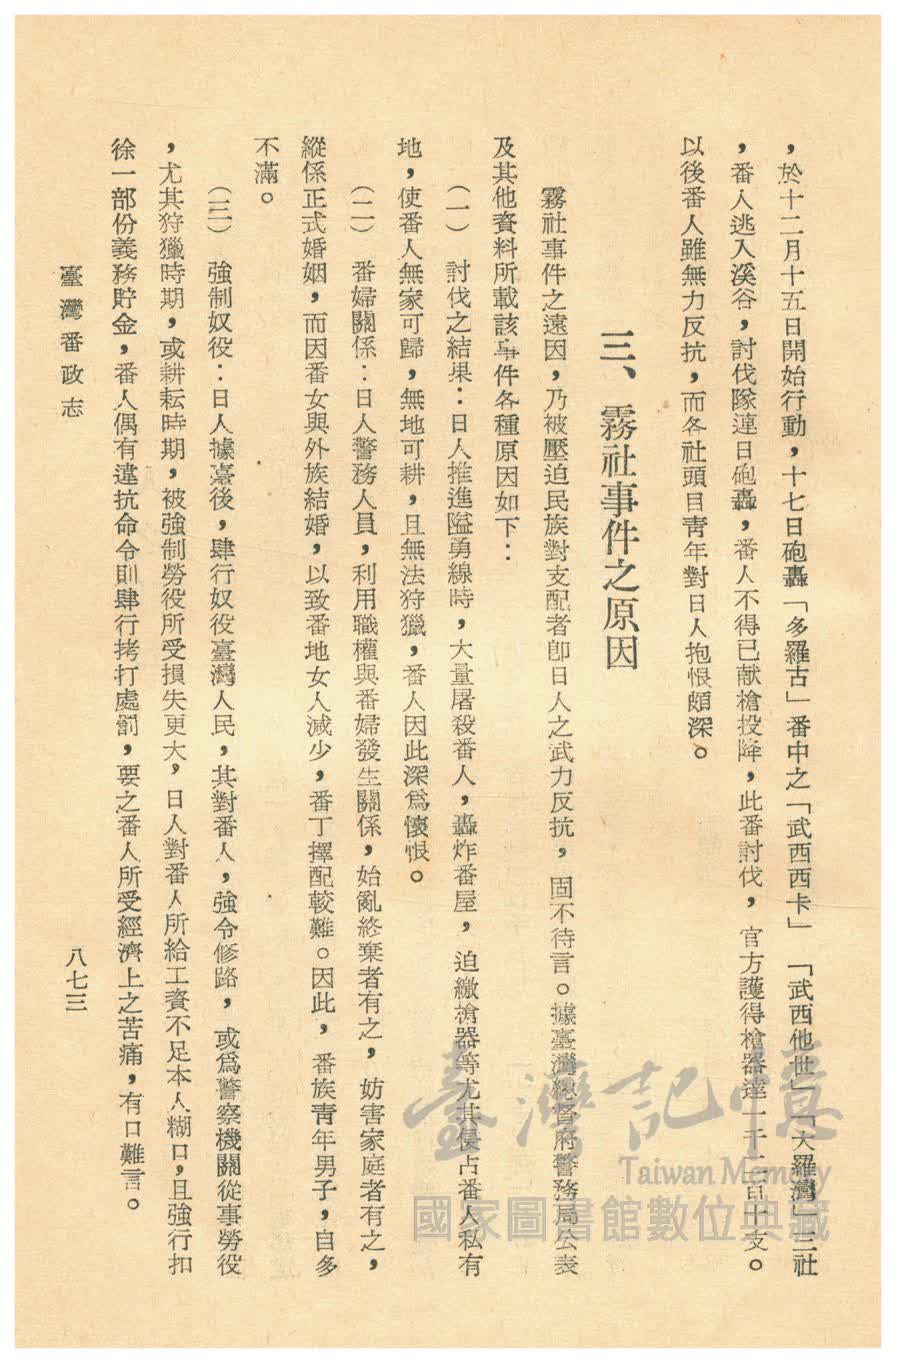 ，於十二月十五日開始行動，十七日砲轟「多羅古」番中之「武西西卡」「武西他世」「大羅灣」三社
，番人逃入溪谷，討伐隊連日砲轟，番人不得已献槍投降，此番討伐，官方護得槍器達一千二百十支。
以後番人雖無力反抗，而各社頭目青年對日人抱恨頗深。
三、霧社事件之原因
霧社事件之遠因，乃被壓迫民族對支配者卽日人之武力反抗，固不待言。據臺灣總督府警務局公表
及其他資料所載該事件各種原因如下：
（一）討伐之結果：日人推進隘勇線時，大量屠殺番人，轟炸番屋，迫繳槍器等尤其侵占番人私有
地，使番人無家可歸，無地可耕，且無法狩獵，番人因此深爲懷恨。
（二）番婦關係：日人警務人員，利用職權與番婦發生關係，始亂終棄者有之，妨害家庭者有之，
縱係正式婚姻，而因番女與外族結婚，以致番地女人減少，番丁擇配較難。因此，番族青年男子，自多
不滿。
（三）強制奴役：日人據臺後，肆行奴役臺灣人民，其對番人，強令修路，或爲警察機關從事勞役
，尤其狩獵時期，或耕耘時期，被強制勞役所受損失更大，日人對番人所給工資不足本人糊口，且強行扣
徐一部份義務貯金，番人偶有違抗命令則肆行拷打處罰，要之番人所受經濟上之苦痛，有口難言。
臺灣番政志
八七三
臺灣記憶
Taiwan Memory
國家圖書館數位典藏